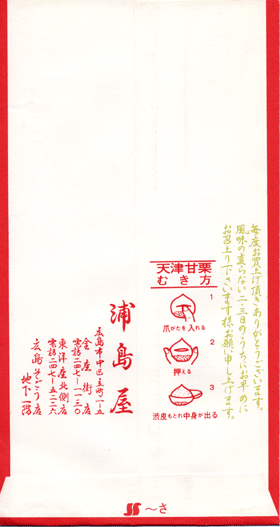 毎度お買上げ頂きありがとうございます。
風味の変らない二三日のうちにお早めに
お召上り下さいます様お願い申し上げます。
天津甘栗
むき方
1
爪がたを入れる
2
押える
3
渋皮もとれ中身が出る
浦島屋
広島市中区立町一ノ五
金座街店
電話二四七-五一三〇
東洋座北側店
電話二四七-五二二六
広島そごう店
地下一階
SS 〜さ